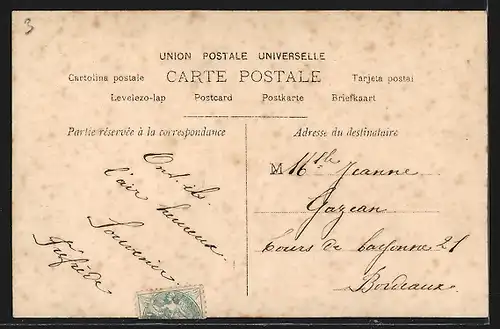 3
UNION POSTALE UNIVERSELLE
Cartolina postale CARTE POSTALE Tarjeta postal
Levelezo-lap Postcard Postkarte Briefkaart
Partie réservée à la correspondance
Ont-ils
l'air heureux
Souvenir
Adresse du destinataire
M Mlle Jeanne
Gazeau
Cours de bayonne 21
Bordeaux